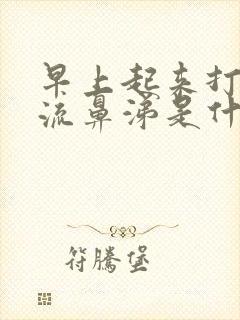 早上起来打
流鼻涕是什
符腾堡